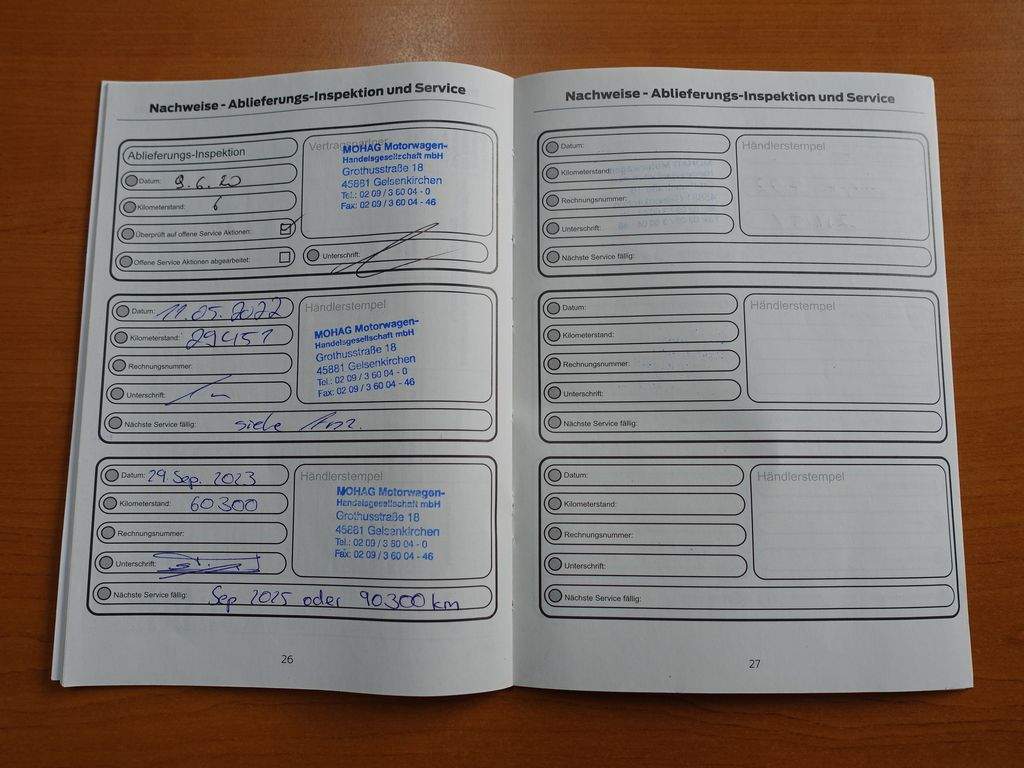 Nachweise - Ablieferungs-Inspektion und Service
Ablieferungs-Inspektion
Datum: 9.6.20
Kilometerstand: 6
Überprüft auf offene Service Aktionen:
Offene Service Aktionen abgearbeitet:
Vertragspartner
MOHAG Motorwagen-
Handelsgesellschaft mbH
Grothusstraße 18
45881 Gelsenkirchen
Tel.: 02 09 / 3 60 04 - 0
Fax: 02 09 / 3 60 04 - 46
Unterschrift:
Datum: 11.05.2022
Kilometerstand: 29451
Rechnungsnummer:
Unterschrift:
Händlerstempel
MOHAG Motorwagen-
Handelsgesellschaft mbH
Grothusstraße 18
45881 Gelsenkirchen
Tel.: 02 09 / 3 60 04 - 0
Fax: 02 09 / 3 60 04 - 46
Nächste Service fällig: siehe
Datum: 29 Sep. 2023
Kilometerstand: 60300
Rechnungsnummer:
Unterschrift:
Händlerstempel
MOHAG Motorwagen-
Handelsgesellschaft mbH
Grothusstraße 18
45881 Gelsenkirchen
Tel.: 02 09 / 3 60 04 - 0
Fax: 02 09 / 3 60 04 - 46
Nächste Service fällig: Sep 2025 oder 90300 km
26
Nachweise - Ablieferungs-Inspektion und Service
Datum:
Kilometerstand:
Rechnungsnummer:
Unterschrift:
Händlerstempel
Nächste Service fällig:
Datum:
Kilometerstand:
Rechnungsnummer:
Unterschrift:
Händlerstempel
Nächste Service fällig:
Datum:
Kilometerstand:
Rechnungsnummer:
Unterschrift:
Händlerstempel
Nächste Service fällig:
27